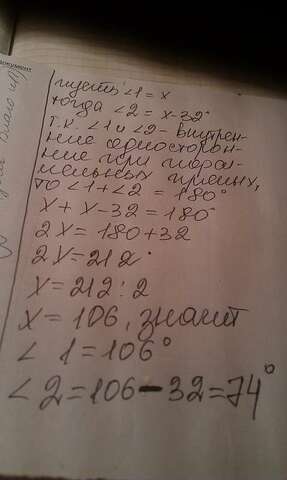 пусть ∠1 = x
тогда ∠2 = x-32°
т.к. ∠1 и ∠2 - внутрен-
ние односторон-
ние при парал-
лельных прямых,
то ∠1+∠2 = 180°
x + x-32 = 180°
2x = 180+32
2x = 212
x = 212 : 2
x = 106, значит
∠ 1 = 106°
∠2 = 106-32 = 74°